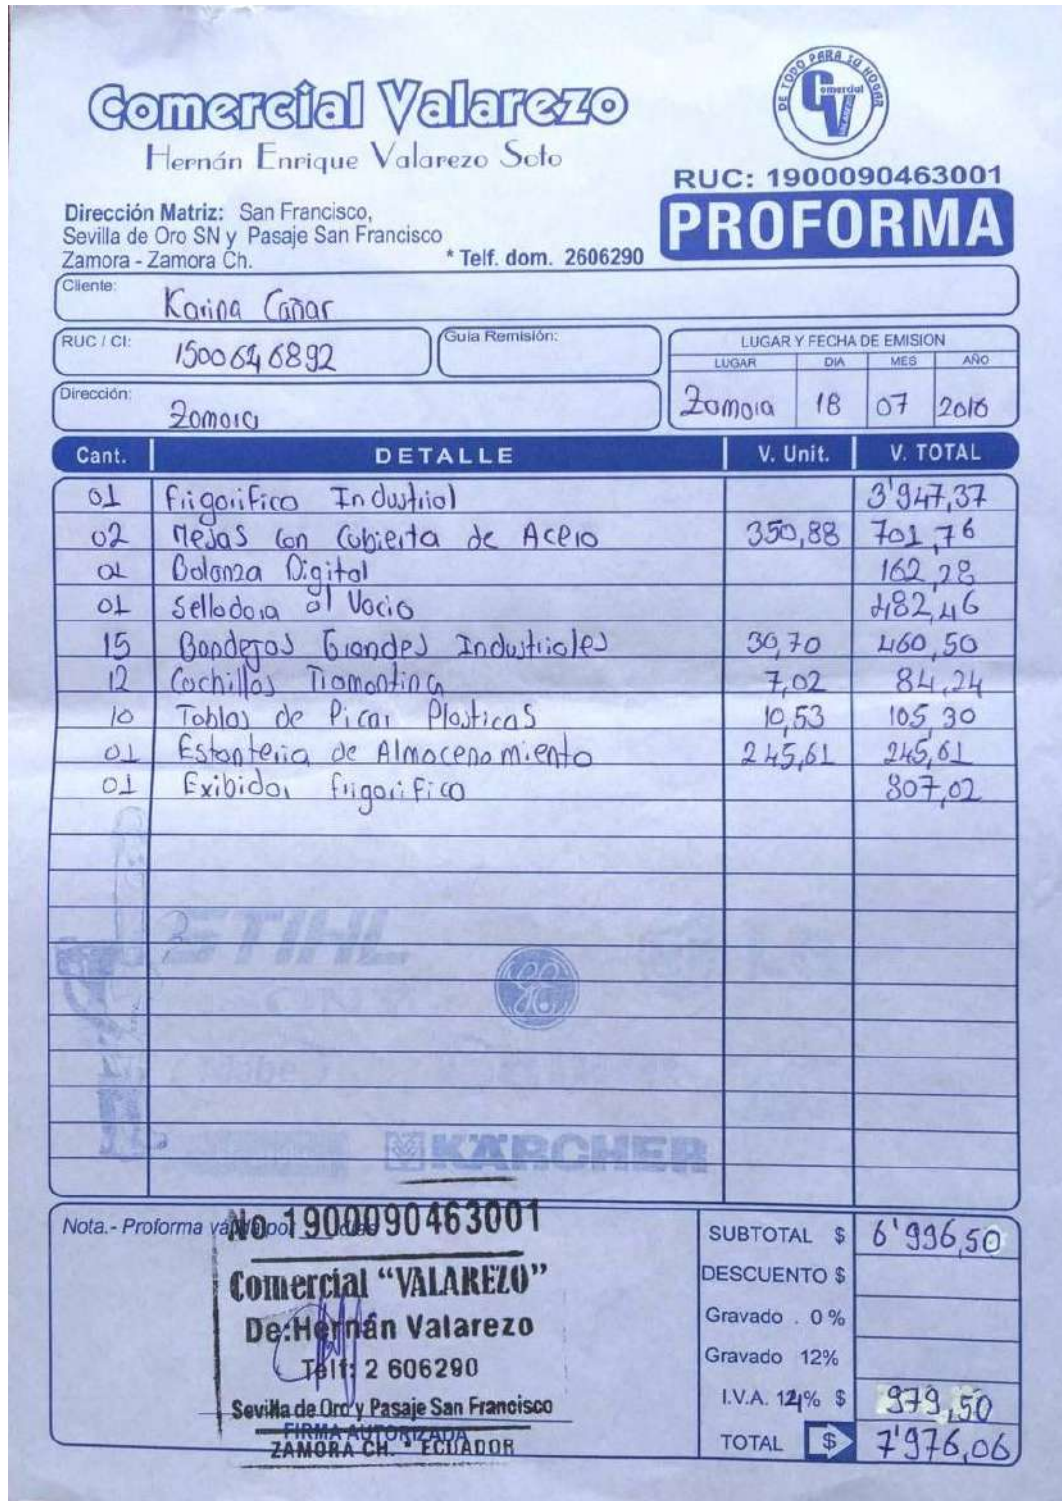 DE TODO PARA SU HOGAR
Comercial
CV
VALAREZO
Comercial Valarezo
Hernán Enrique Valarezo Soto
RUC: 1900090463001
PROFORMA
Dirección Matriz: San Francisco,
Sevilla de Oro SN y Pasaje San Francisco
Zamora - Zamora Ch. * Telf. dom. 2606290
Cliente: Karina Cañar
RUC / CI: 1500646892 Guia Remisión:
LUGAR Y FECHA DE EMISION
LUGAR DIA MES AÑO
Zamora 18 07 2016
Dirección: Zamora
Cant. DETALLE V. Unit. V. TOTAL
01 Frigorifico Industrial 3'947,37
02 Mesas con Cubierta de Acero 350,88 701,76
01 Balanza Digital 162,28
01 Selladora al Vacio 482,46
15 Bandejas Grandes Industriales 30,70 460,50
12 Cuchillos Tramontina 7,02 84,24
10 Tablas de Picar Plasticas 10,53 105,30
01 Estanteria de Almacenamiento 245,61 245,61
01 Exibidor frigorifico 807,02
STIHL
GE
KÄRCHER
Nota.- Proforma válida por días
No 1900090463001
Comercial "VALAREZO"
De: Hernán Valarezo
Telf: 2 606290
Sevilla de Oro y Pasaje San Francisco
FIRMA AUTORIZADA
ZAMORA CH. * ECUADOR
SUBTOTAL $ 6'996,50
DESCUENTO $
Gravado . 0 %
Gravado 12%
I.V.A. 14% $ 979,50
TOTAL $ 7'976,06